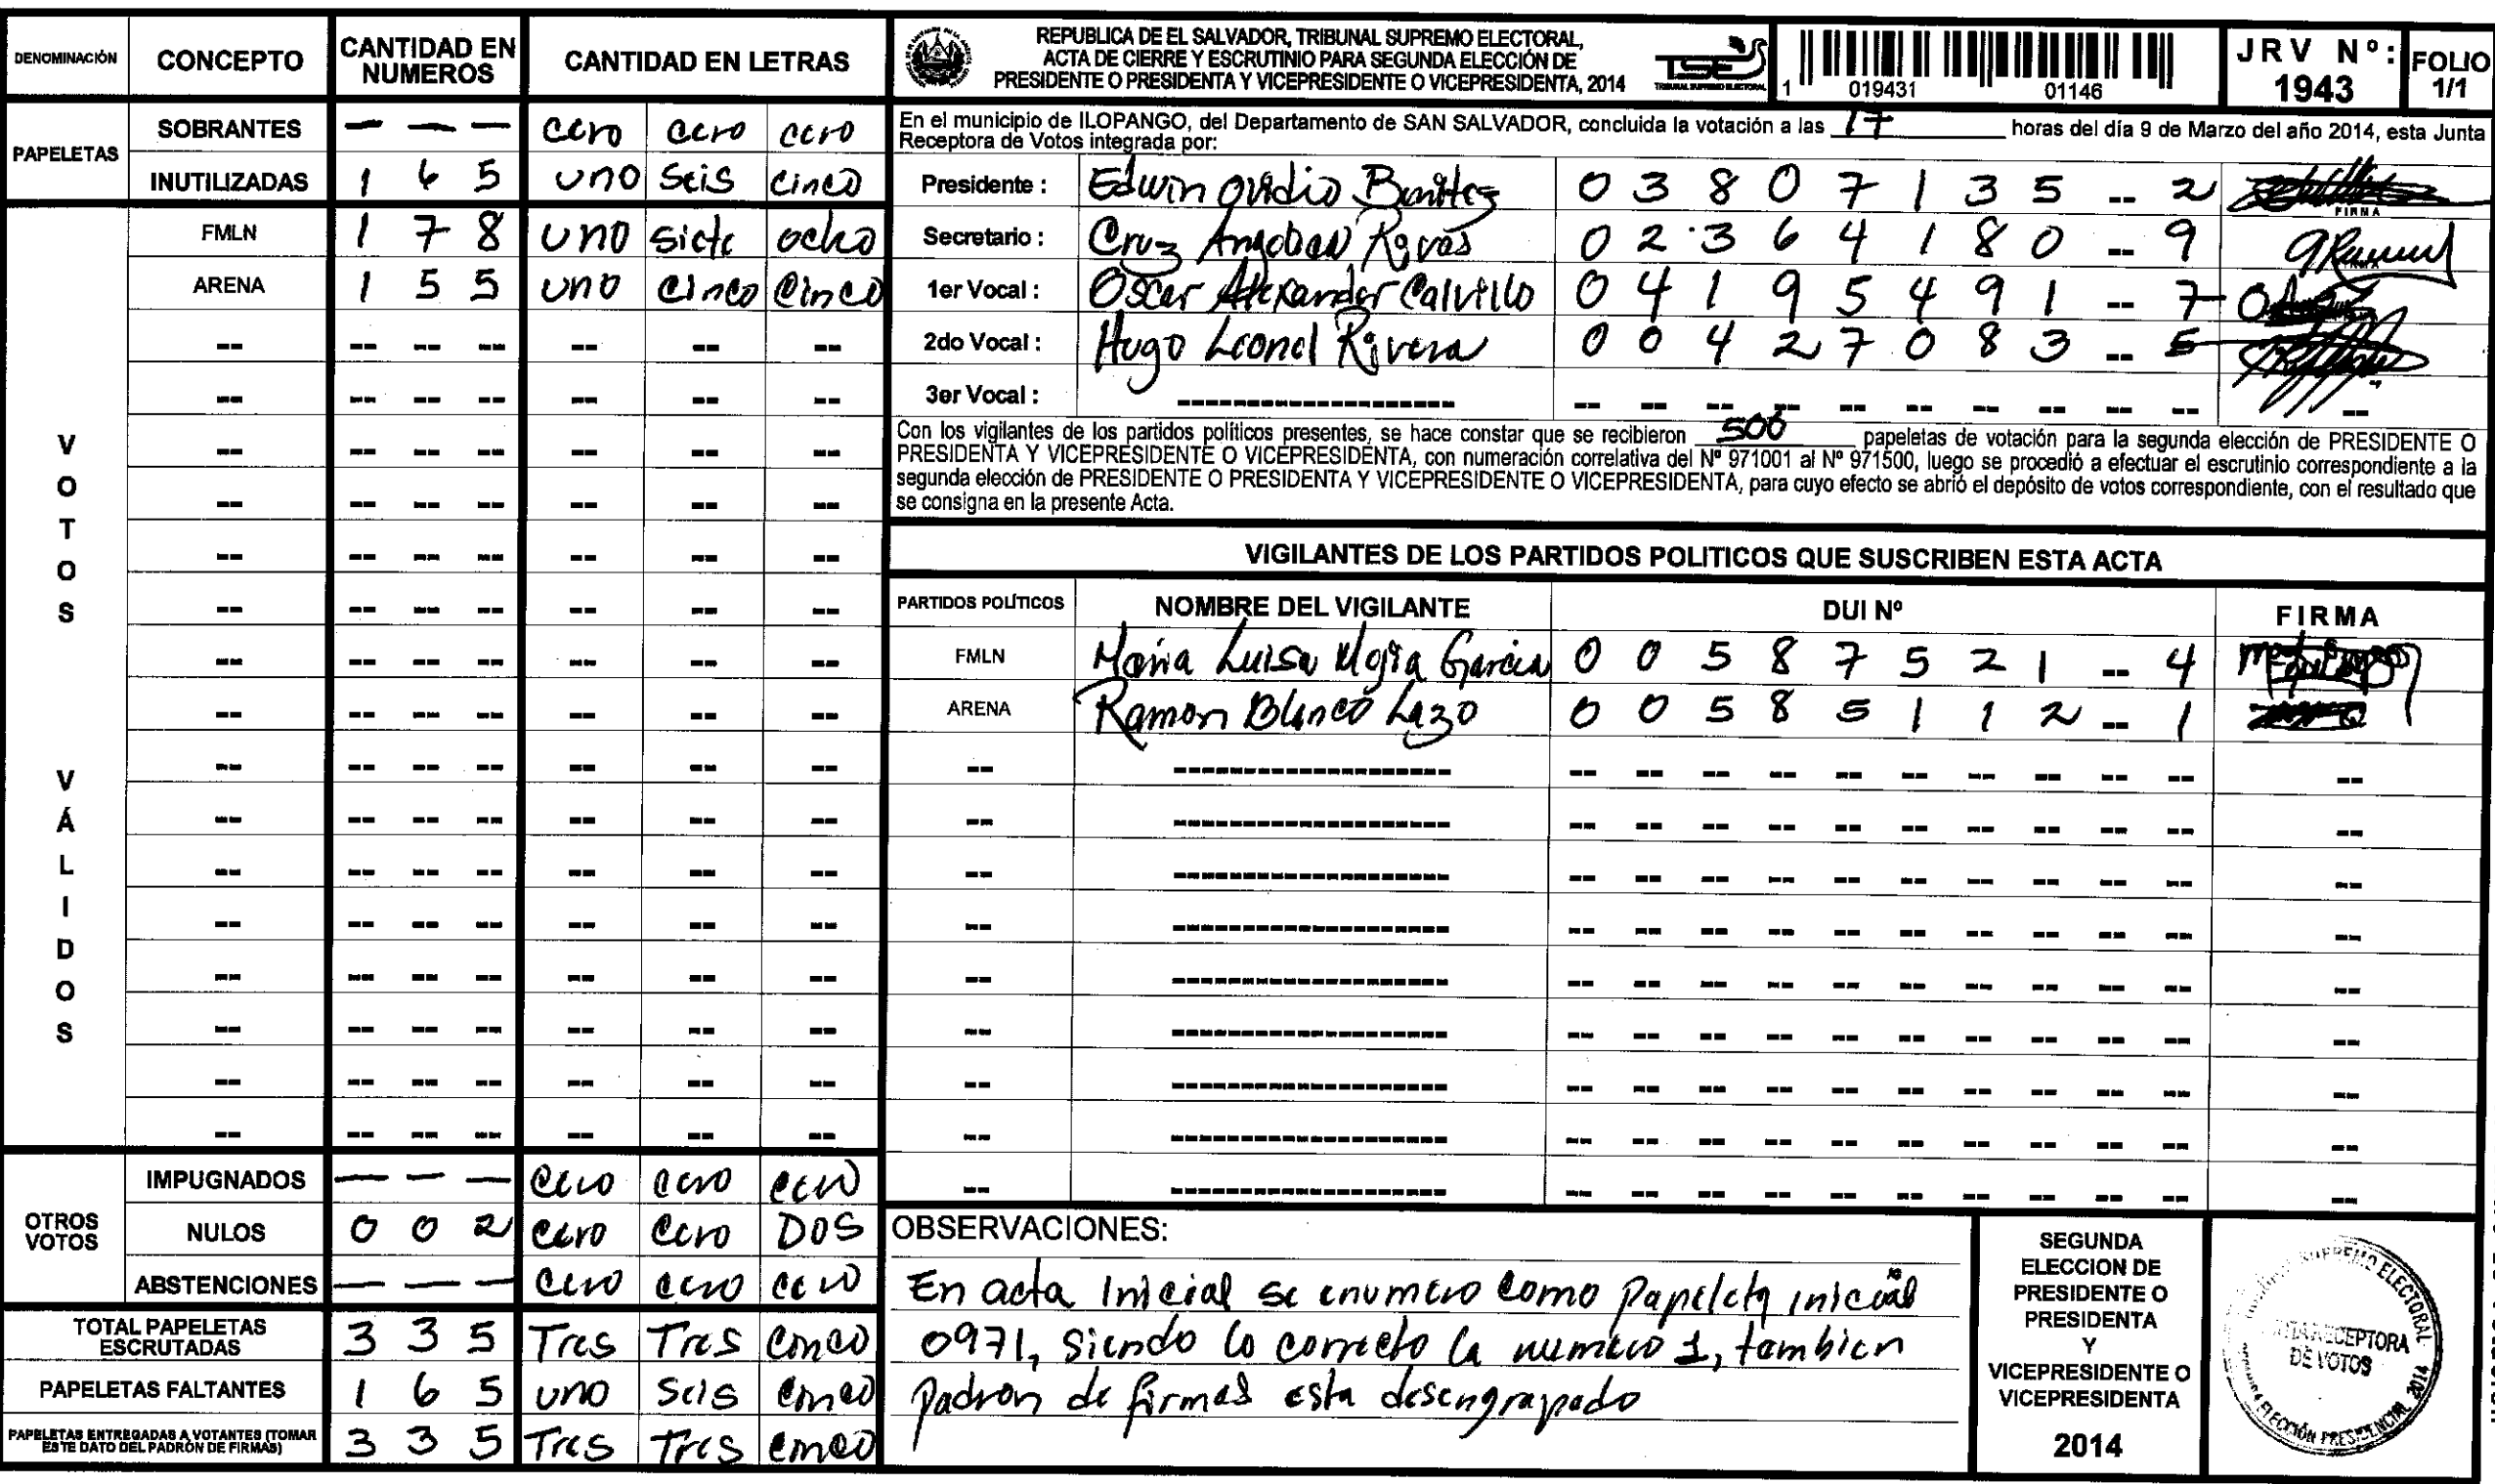 DENOMINACIÓN CONCEPTO CANTIDAD EN NUMEROS CANTIDAD EN LETRAS
PAPELETAS
SOBRANTES — — — cero cero cero
INUTILIZADAS 1 6 5 uno seis cinco
VOTOS VÁLIDOS
FMLN 1 7 8 uno siete ocho
ARENA 1 5 5 uno cinco cinco
OTROS VOTOS
IMPUGNADOS — — — cero cero cero
NULOS 0 0 2 cero cero DOS
ABSTENCIONES — — — cero cero cero
TOTAL PAPELETAS ESCRUTADAS 3 3 5 Tres Tres cinco
PAPELETAS FALTANTES 1 6 5 uno seis cinco
PAPELETAS ENTREGADAS A VOTANTES (TOMAR ESTE DATO DEL PADRÓN DE FIRMAS) 3 3 5 Tres Tres cinco
REPUBLICA DE EL SALVADOR, TRIBUNAL SUPREMO ELECTORAL,
ACTA DE CIERRE Y ESCRUTINIO PARA SEGUNDA ELECCIÓN DE
PRESIDENTE O PRESIDENTA Y VICEPRESIDENTE O VICEPRESIDENTA, 2014
TSE
TRIBUNAL SUPREMO ELECTORAL
1 019431 01146
JRV Nº: 1943
FOLIO 1/1
En el municipio de ILOPANGO, del Departamento de SAN SALVADOR, concluida la votación a las 17 horas del día 9 de Marzo del año 2014, esta Junta
Receptora de Votos integrada por:
Presidente : Edwin Ovidio Benitez 0 3 8 0 7 1 3 5 -- 2
FIRMA
Secretario : Cruz Rivas 0 2 3 6 4 1 8 0 -- 9
1er Vocal : Oscar Alexander Calvillo 0 4 1 9 5 4 9 1 -- 7
2do Vocal : Hugo Leonel Rivera 0 0 4 2 7 0 8 3 -- 5
3er Vocal : --------------------
Con los vigilantes de los partidos políticos presentes, se hace constar que se recibieron 500 papeletas de votación para la segunda elección de PRESIDENTE O
PRESIDENTA Y VICEPRESIDENTE O VICEPRESIDENTA, con numeración correlativa del Nº 971001 al Nº 971500, luego se procedió a efectuar el escrutinio correspondiente a la
segunda elección de PRESIDENTE O PRESIDENTA Y VICEPRESIDENTE O VICEPRESIDENTA, para cuyo efecto se abrió el depósito de votos correspondiente, con el resultado que
se consigna en la presente Acta.
VIGILANTES DE LOS PARTIDOS POLITICOS QUE SUSCRIBEN ESTA ACTA
PARTIDOS POLÍTICOS NOMBRE DEL VIGILANTE DUI Nº FIRMA
FMLN Maria Luisa Mejia Garcia 0 0 5 8 7 5 2 1 -- 4
ARENA Ramon Blanco Lazo 0 0 5 8 5 1 1 2 -- 1
OBSERVACIONES:
En acta Inicial se enumero como papeleta inicial
0971, siendo lo correcto la numero 1, tambien
padron de firmas esta desengrapado
SEGUNDA
ELECCION DE
PRESIDENTE O
PRESIDENTA
Y
VICEPRESIDENTE O
VICEPRESIDENTA
2014
SUPREMO ELECTORAL
RECEPTORA
DE VOTOS
ELECCIÓN PRESIDENCIAL 2014